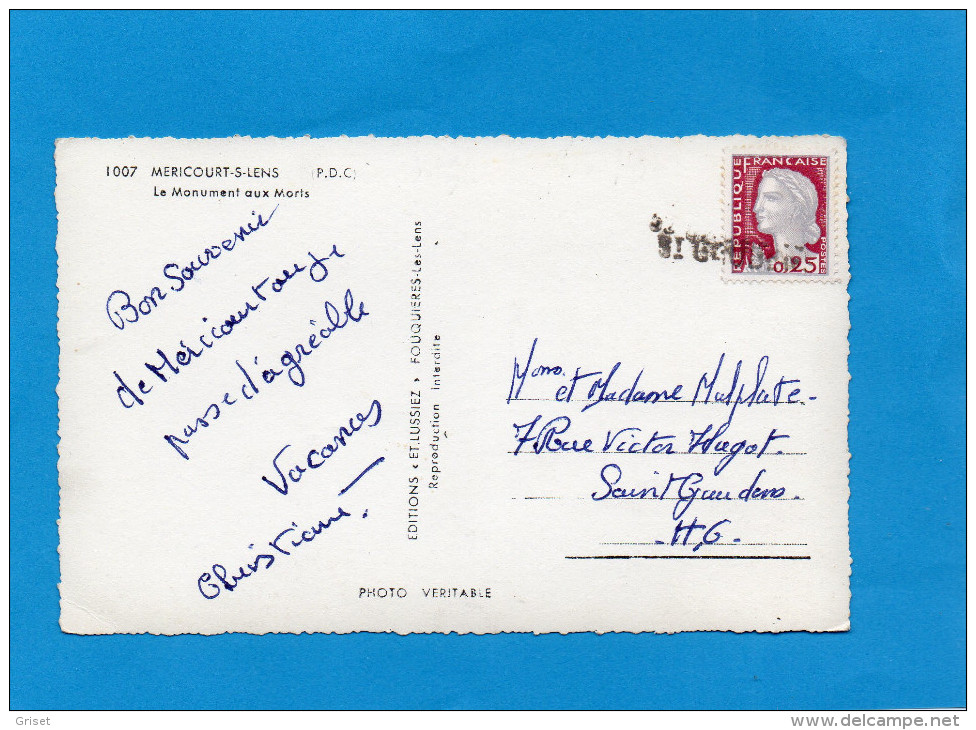 1007 MERICOURT-S-LENS (P.D.C)
Le Monument aux Morts
Bon Souvenir
de Méricourt ou je
passe d'agréable
Vacances
Christiane.
EDITIONS « ET.LUSSIEZ » FOUQUIERES-Les-Lens
Reproduction Interdite
PHOTO VERITABLE
REPUBLIQUE FRANCAISE
POSTES
0,25
et Madame Malplate-
7 Rue Victor Hugot.
Saint Gaudens.
-H,G.-
Griset
www.delcampe.net